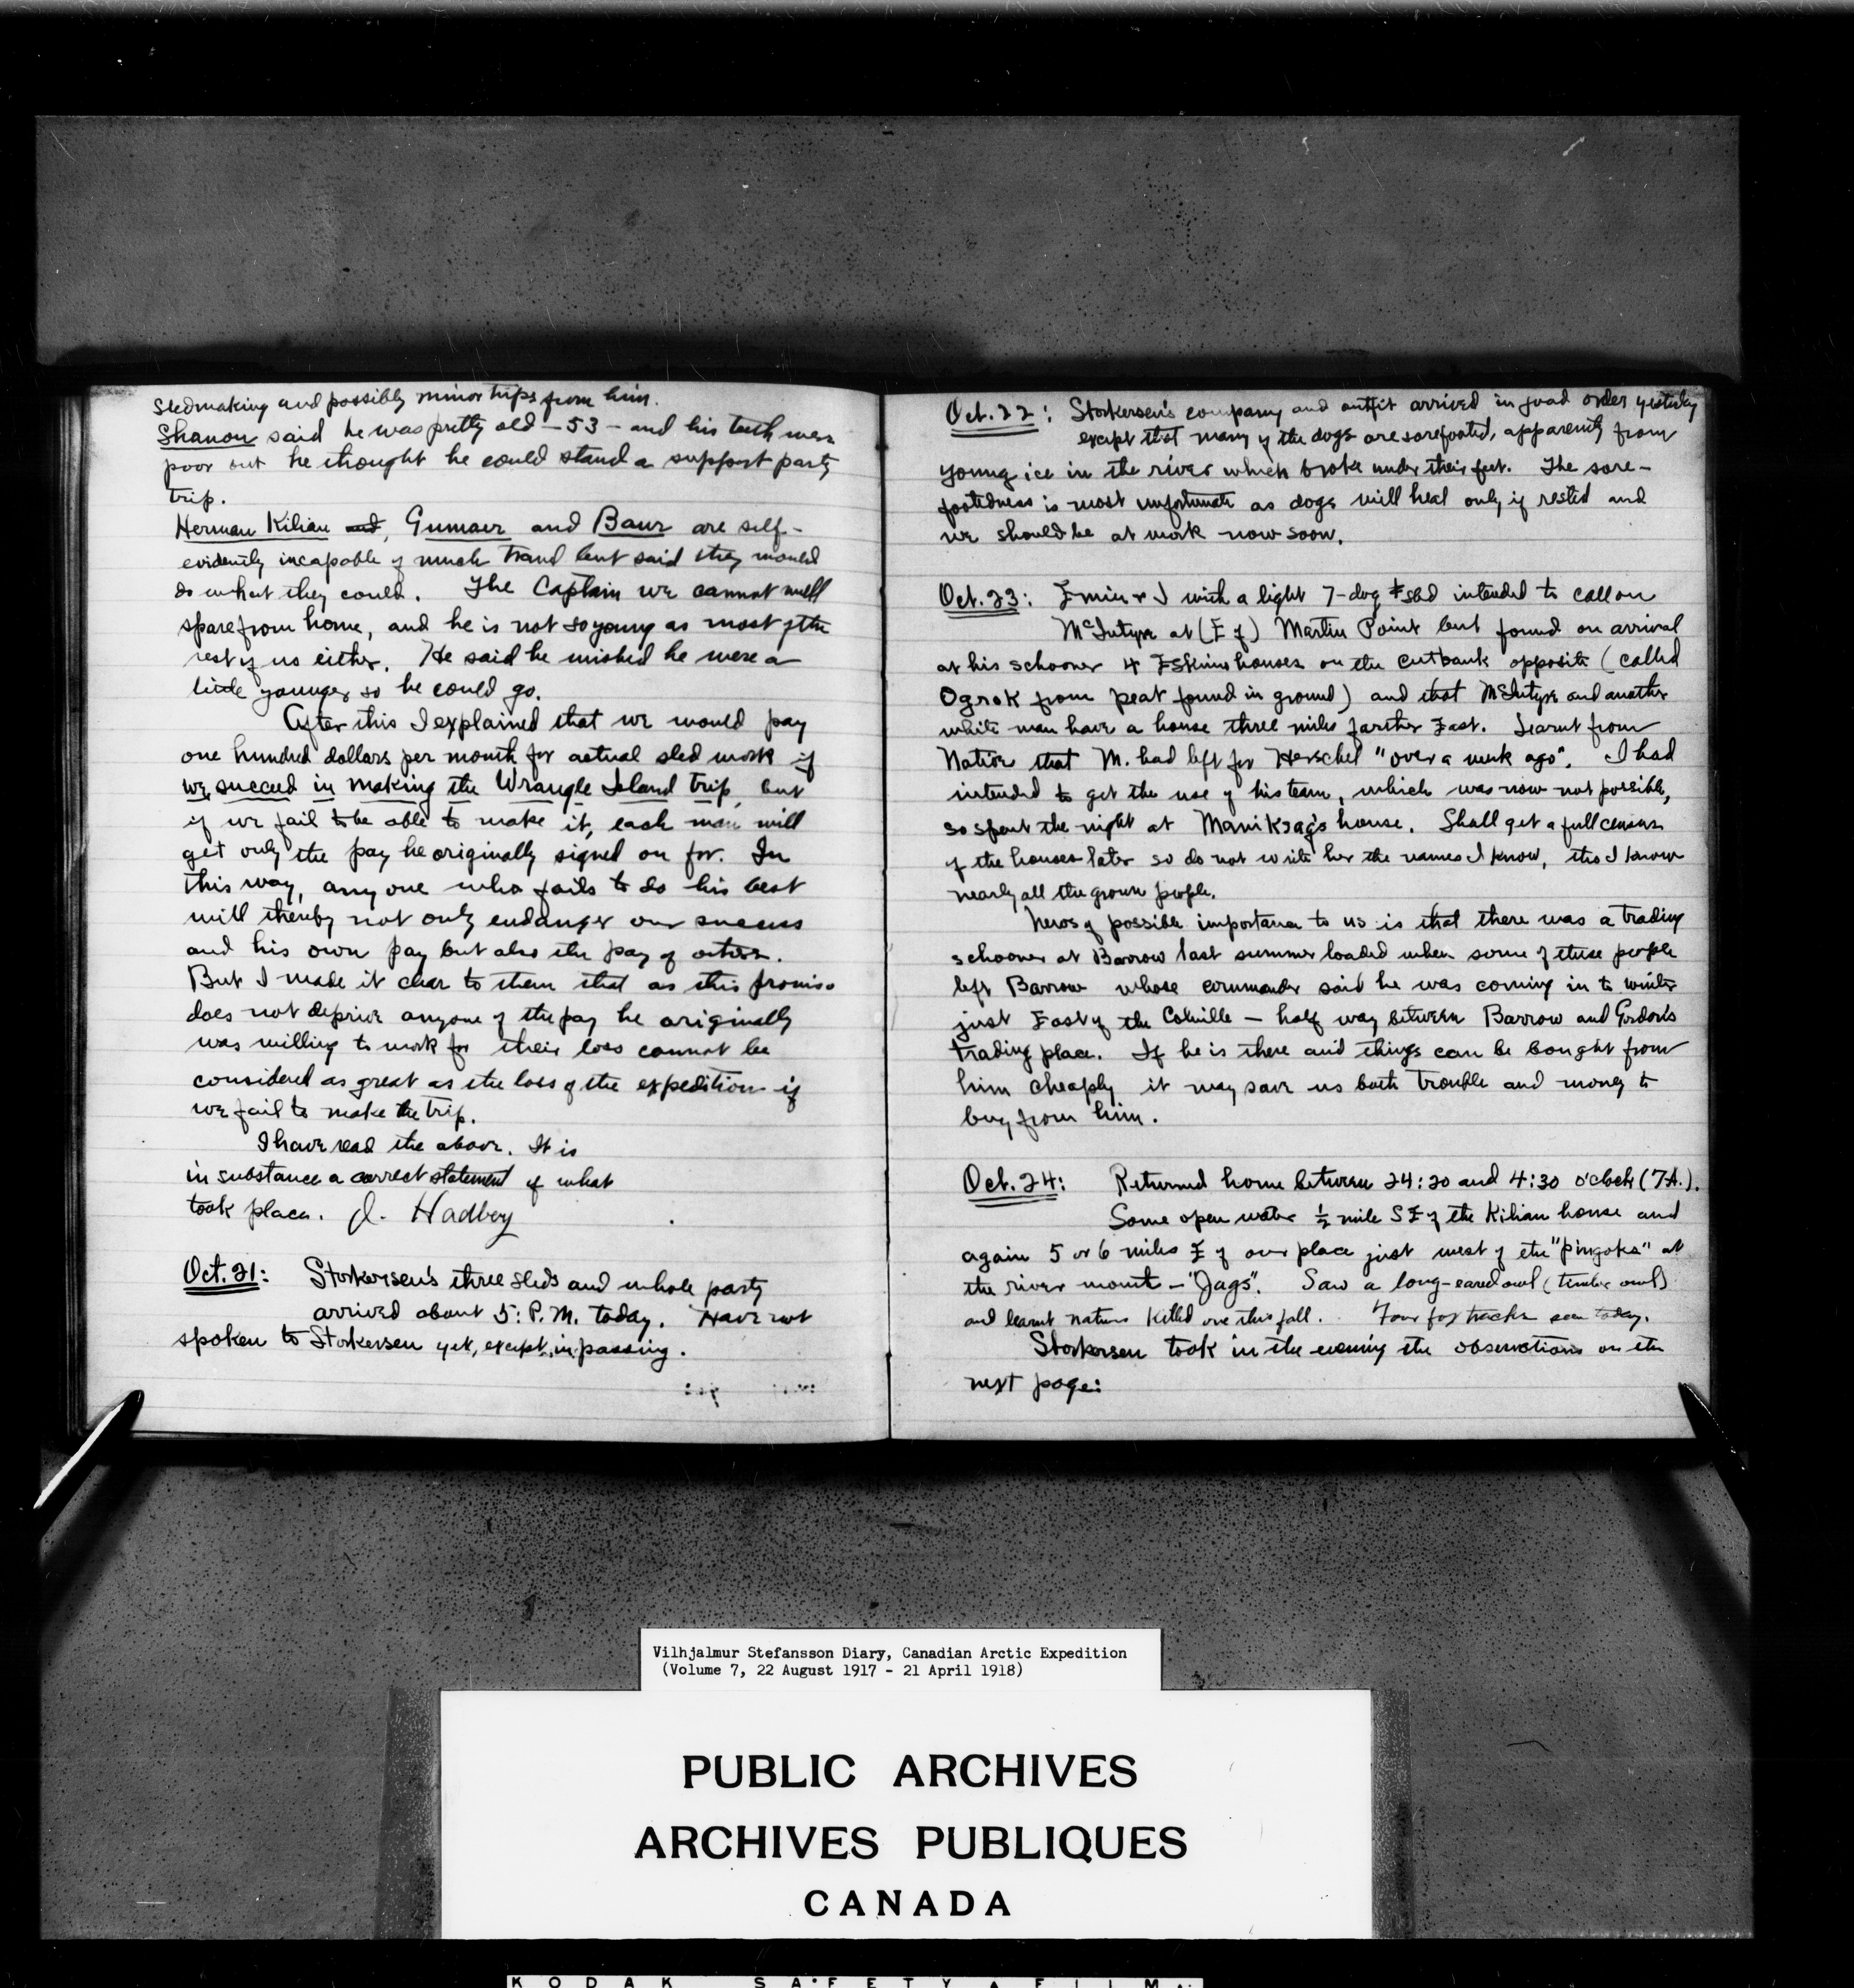 Sledmaking and possibly minor trips from him.
Shanon said he was pretty old - 53 - and his teeth were
poor but he thought he could stand a support party
trip.
Herman Kilian and, Gumaer and Baur are self-
evidently incapable of much travel but said they would
do what they could. The Captain we cannot well
spare from home, and he is not so young as most of the
rest of us either. He said he wished he were a
little younger so he could go.
After this I explained that we would pay
one hundred dollars per month for actual sled work if
we succeed in making the Wrangle Island trip, but
if we fail to be able to make it, each man will
get only the pay he originally signed on for. In
this way, anyone who fails to do his best
will thereby not only endanger our success
and his own pay but also the pay of others.
But I made it clear to them that as this promise
does not deprive anyone of the pay he originally
was willing to work for their loss cannot be
considered as great as the loss of the expedition if
we fail to make the trip.
I have read the above. It is
in substance a correct statement of what
took place. J. Hadley
Oct. 21: Storkersen's three sleds and whole party
arrived about 5: P.M. today. Have not
spoken to Storkersen yet, except in passing.
Oct. 22: Storkersen's company and outfit arrived in good order yesterday
except that many of the dogs are sorefooted, apparently from
young ice in the river which broke under their feet. The sore-
footedness is most unfortunate as dogs will heal only if rested and
we should be at work now soon.
Oct. 23: Emiu & I with a light 7-dog sled intended to call on
McIntyre at (E of) Martin Point but found on arrival
at his schooner 4 Eskimo houses on the cutbank opposite (called
Ogrok from peat found in ground) and that McIntyre and another
white man have a house three miles farther East. Learnt from
Native that M. had left for Herschel "over a week ago". I had
intended to get the use of his team, which was now not possible,
so spent the night at house. Shall get a full census
of the houses later so do not write her the names I know, tho I know
nearly all the grown people.
News of possible importance to us is that there was a trading
schooner at Barrow last summer loaded when some of these people
left Barrow whose commander said he was coming in to winter
just East of the Colville - half way between Barrow and Gordon's
trading place. If he is there and things can be bought from
him cheaply it may save us both trouble and money to
buy from him.
Oct. 24: Returned home between 24:20 and 4:30 o'clock (7A.).
Some open water ½ mile SE of the Kilian house and
again 5 or 6 miles E of our place just west of the "pingoks" at
the river mouth - "Jags". Saw a long-eared owl (timber owl)
and learnt natives killed one this fall. Four fox tracks seen today.
Storkersen took in the evening the observations on the
next page:
Vilhjalmur Stefansson Diary, Canadian Arctic Expedition
(Volume 7, 22 August 1917 - 21 April 1918)
PUBLIC ARCHIVES
ARCHIVES PUBLIQUES
CANADA
KODAK SAFETY FILM